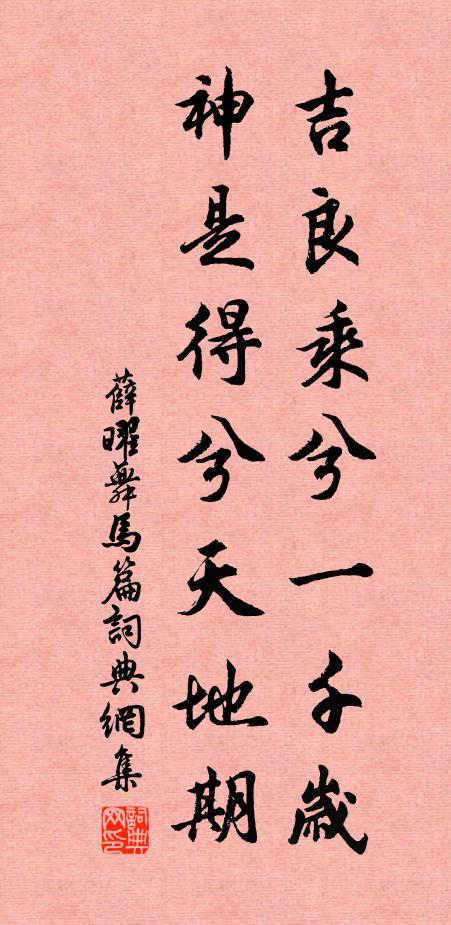 吉良乘兮一千歲
神是得兮天地期
薛曜舞馬篇詞典網集
詞典网印